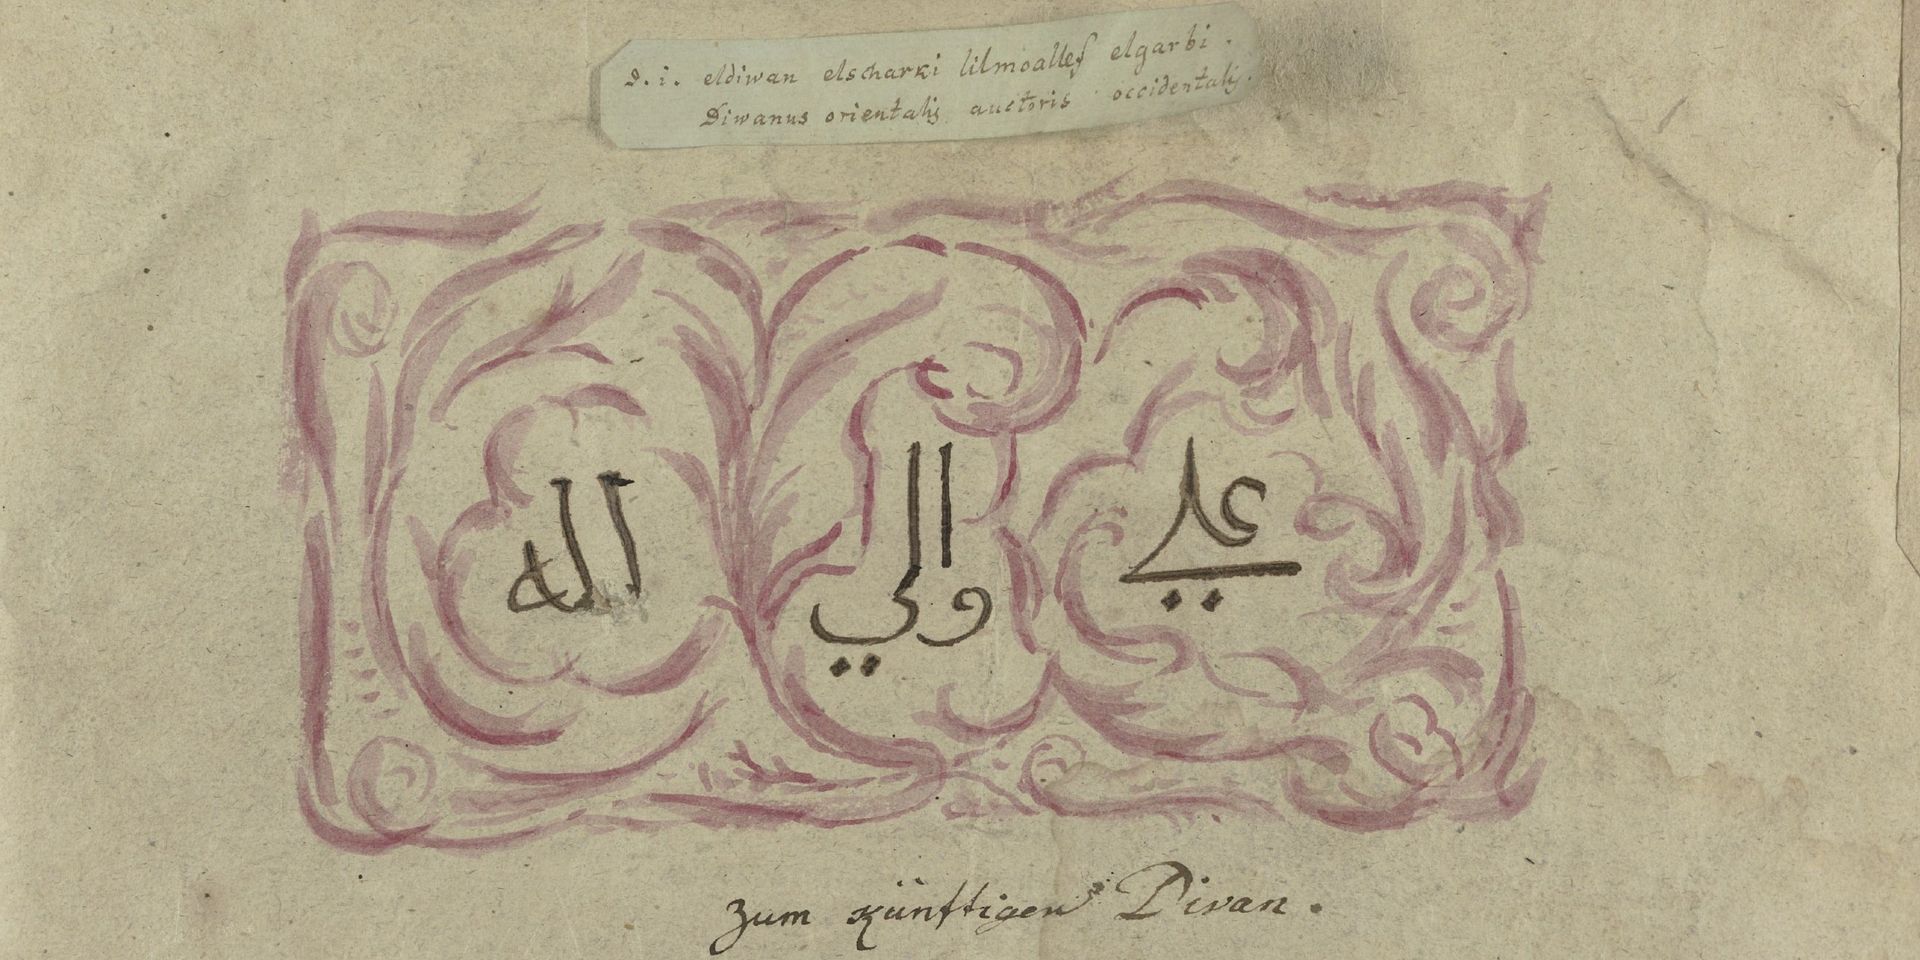 d. i. eldiwan elscharki lilmoallef elgarbi.
Diwanus orientalis auctoris occidentalis.
علي والي اله
zum künftigen Divan.